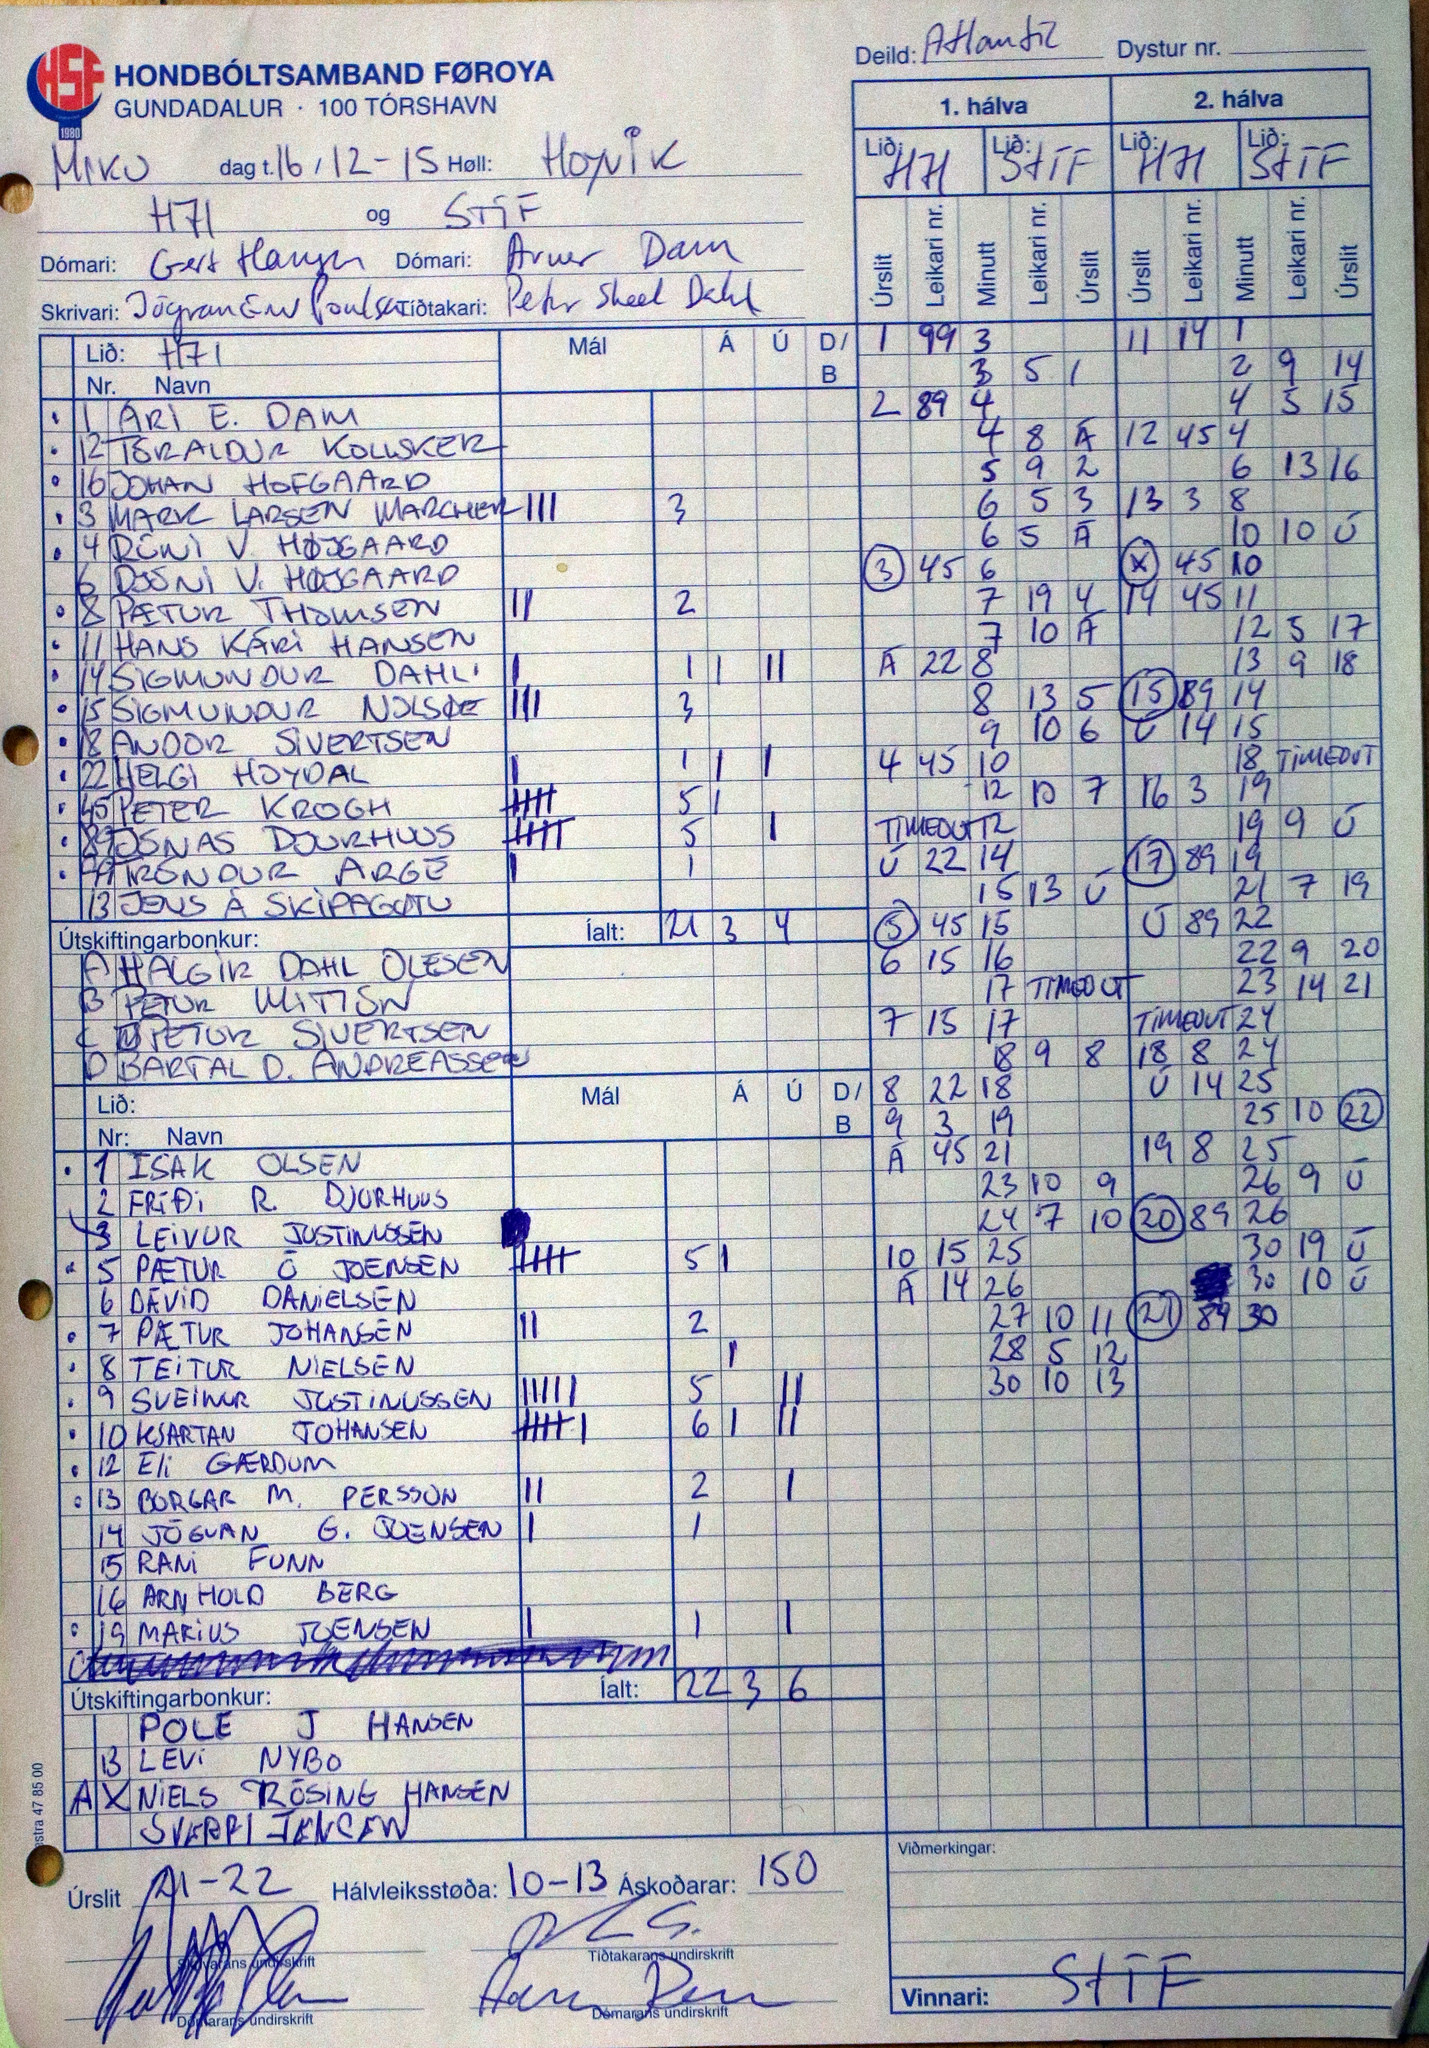 HSF
1980
HONDBÓLTSAMBAND FØROYA
GUNDADALUR · 100 TÓRSHAVN
Deild: Atlantic Dystur nr.
MIKU dag t. 16 / 12-15 Høll:
H71 og STÍF
Dómari: Gert Hansen Dómari: Arner Dam
Skrivari: Tíðtakari: Petur Skeel Dahl
1. hálva 2. hálva
Lið: H71 Lið: STÍF Lið: H71 Lið: STÍF
Úrslit Leikari nr. Minutt Leikari nr. Úrslit Úrslit Leikari nr. Minutt Leikari nr. Úrslit
Lið: H71 Mál Á Ú D/B
Nr. Navn
1 ÁRI E. DAM
12 TÓRALDUR KOLLSKER
16 JÓHAN HOFGAARD
3 MARK LARSEN MARCHER III 3
4 RÓNI V. HØJGAARD
6 DJÓNI V. HØJGAARD
8 PÆTUR THOMSEN II 2
11 HANS KÁRI HANSEN
14 SIGMUNDUR DAHL I 1 I II
15 SIGMUNDUR NOLSØE III 3
18 ANDOR SIVERTSEN
22 HELGI HOYDAL I 1 I I
45 PETER KROGH IIIII 5 I
89 JÓNAS DJURHUUS IIIII 5 I
99 TRÓNDUR ARGE I 1
13 JENS Á SKIPAGØTU
Útskiftingarbonkur: Íalt: 21 3 4
A HALGIR DAHL OLESEN
B PETUR MITTÚN
C PETUR SIVERTSEN
D BARTAL D. ANDREASSEN
Lið: Mál Á Ú D/B
Nr: Navn
1 ISAK OLSEN
2 FRÍÐI R. DJURHUUS
3 LEIVUR JUSTINUSSEN
5 PÆTUR Ó JOENSEN IIIII 5 I
6 DÁVID DANIELSEN
7 PÆTUR JOHANSEN II 2
8 TEITUR NIELSEN I
9 SVEINUR JUSTINUSSEN IIIII 5 II
10 KJARTAN JOHANSEN IIIIII 6 I II
12 Eli GÆRDUM
13 BORGAR M. PERSSON II 2 I
14 JÓGVAN G. JOENSEN I 1
15 RANI FUNN
16 ARNHOLD BERG
19 MARIUS JOENSEN I 1 I
Útskiftingarbonkur: Íalt: 22 3 6
POLE J HANSEN
B LEVI NYBO
A X NIELS RÓSING HANSEN
SVERRI JENSEN
1 99 3
3 5 1
2 89 4
4 8 Á
5 9 2
6 5 3
6 5 Á
3 45 6
7 19 4
7 10 Á
Á 22 8
8 13 5
9 10 6
4 45 10
12 10 7
TIMEOUT 12
Ú 22 14
15 13 Ú
5 45 15
6 15 16
17 TIMEOUT
7 15 17
18 9 8
8 22 18
9 3 19
Á 45 21
23 10 9
24 7 10
10 15 25
Á 14 26
27 10 11
28 5 12
30 10 13
11 14 1
2 9 14
4 5 15
12 45 4
6 13 16
13 3 8
10 10 Ú
X 45 10
14 45 11
12 5 17
13 9 18
15 89 14
Ú 14 15
18 TIMEOUT
16 3 19
19 9 Ú
17 89 19
21 7 19
Ú 89 22
22 9 20
23 14 21
TIMEOUT 24
18 8 24
Ú 14 25
25 10 22
19 8 25
26 9 Ú
20 89 26
30 19 Ú
30 10 Ú
21 89 30
Úrslit 21-22 Hálvleiksstøða: 10-13 Áskoðarar: 150
Skrivarans undirskrift Tíðtakarans undirskrift
Dómarans undirskrift Dómarans undirskrift
Viðmerkingar:
Vinnari: STÍF
estra 47 85 00